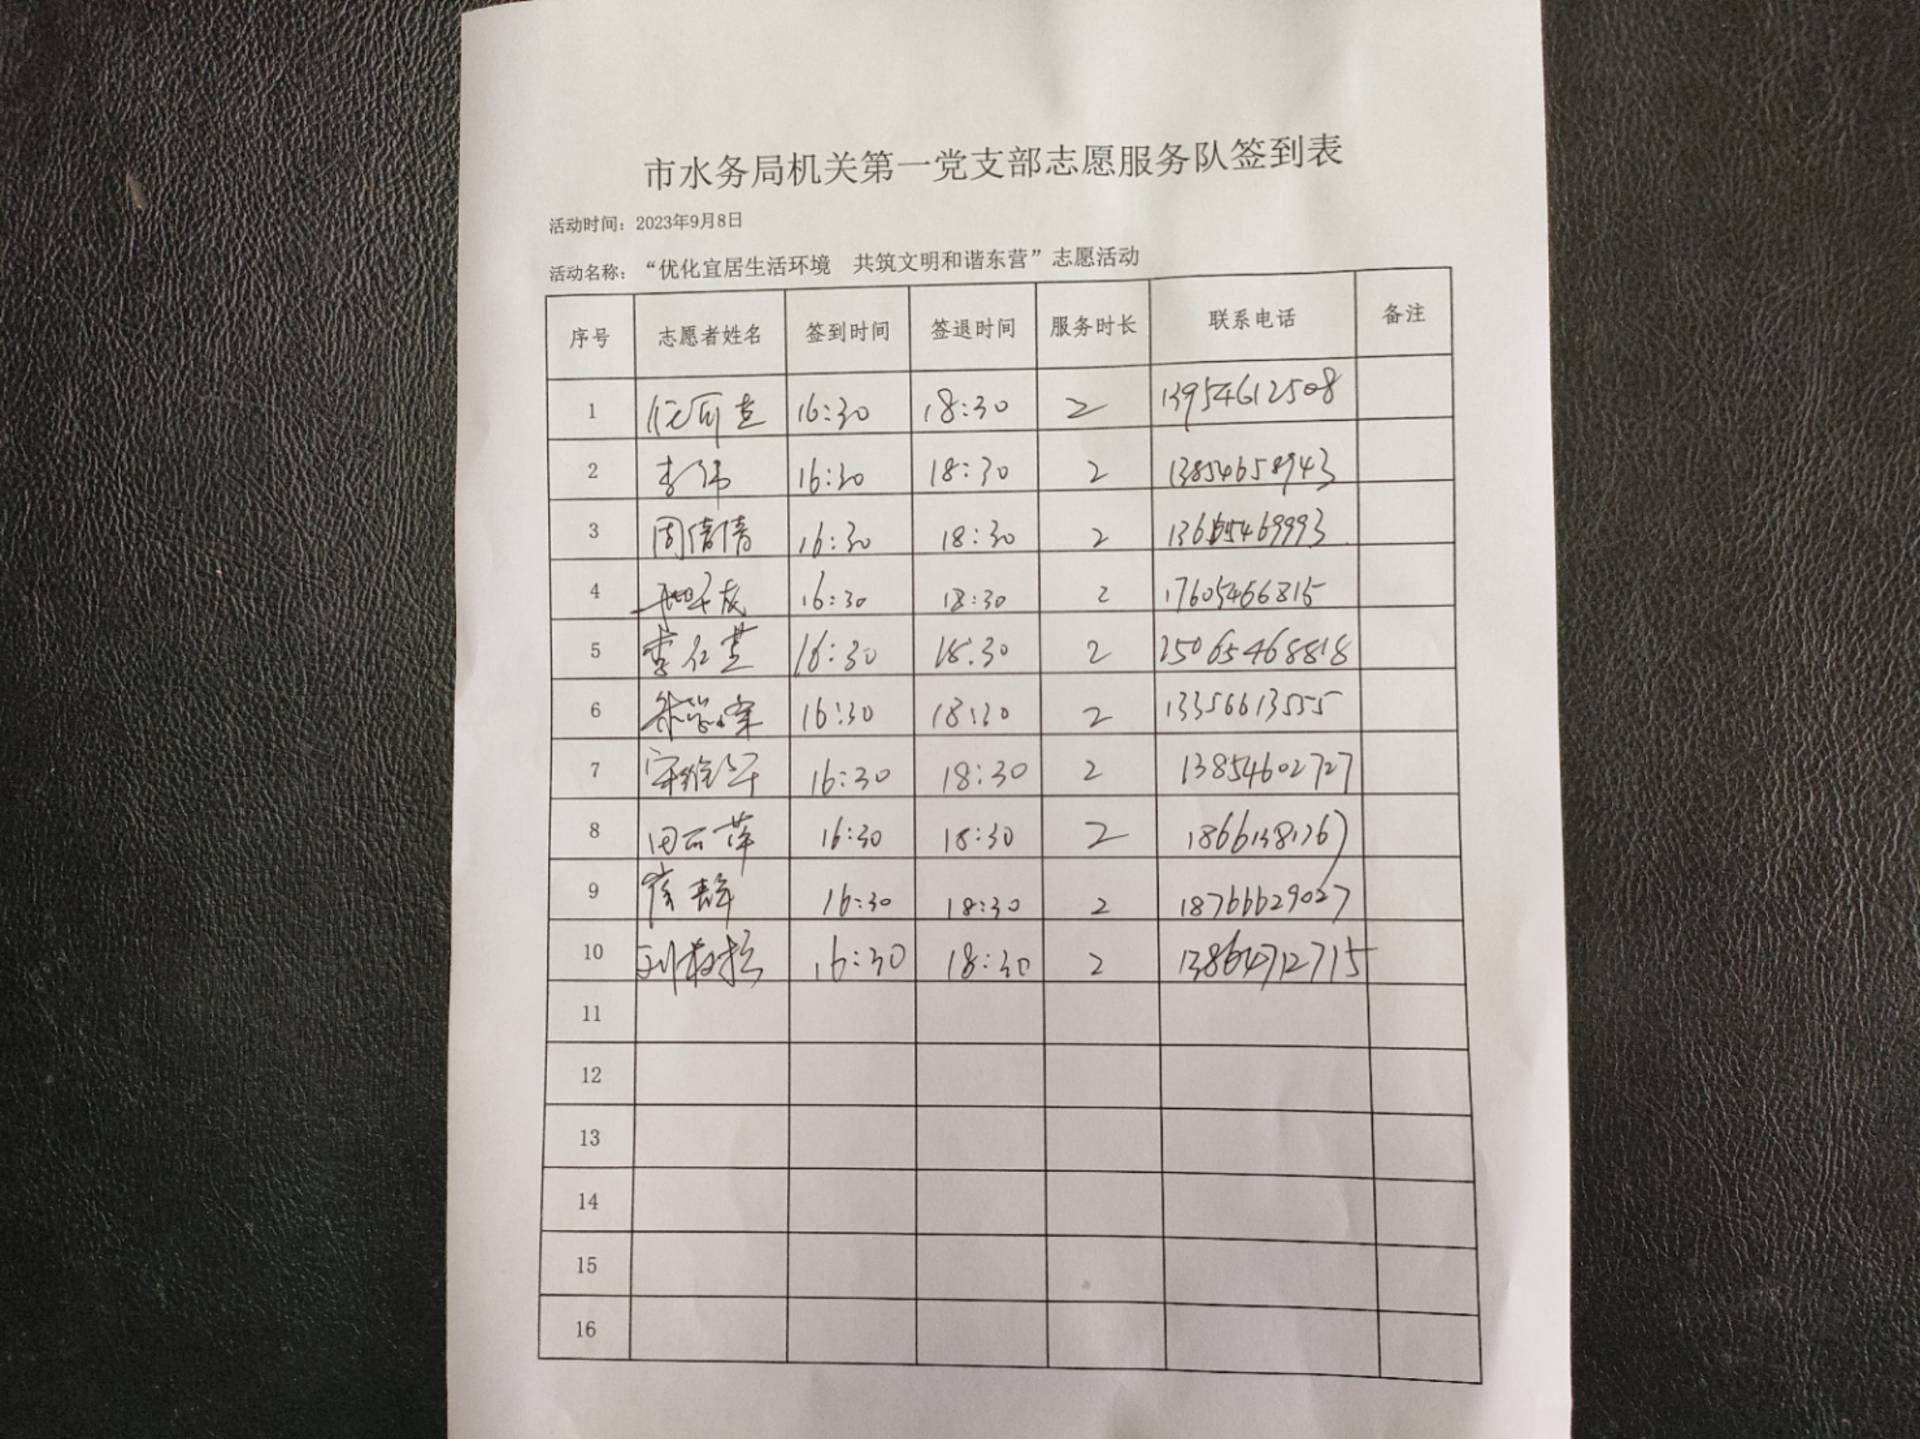 市水务局机关第一党支部志愿服务队签到表
活动时间：2023年9月8日
活动名称：“优化宜居生活环境 共筑文明和谐东营”志愿活动
序号 志愿者姓名 签到时间 签退时间 服务时长 联系电话 备注
1 16:30 18:30 2 13954612508
2 李伟 16:30 18:30 2 13854658943
3 周倩倩 16:30 18:30 2
4 16:30 18:30 2 17605466815
5 16:30 18:30 2
6 16:30 18:30 2 13356613555
7 16:30 18:30 2 13854602727
8 16:30 18:30 2 18661381267
9 16:30 18:30 2 18766629027
10 16:30 18:30 2 13864712715
11
12
13
14
15
16